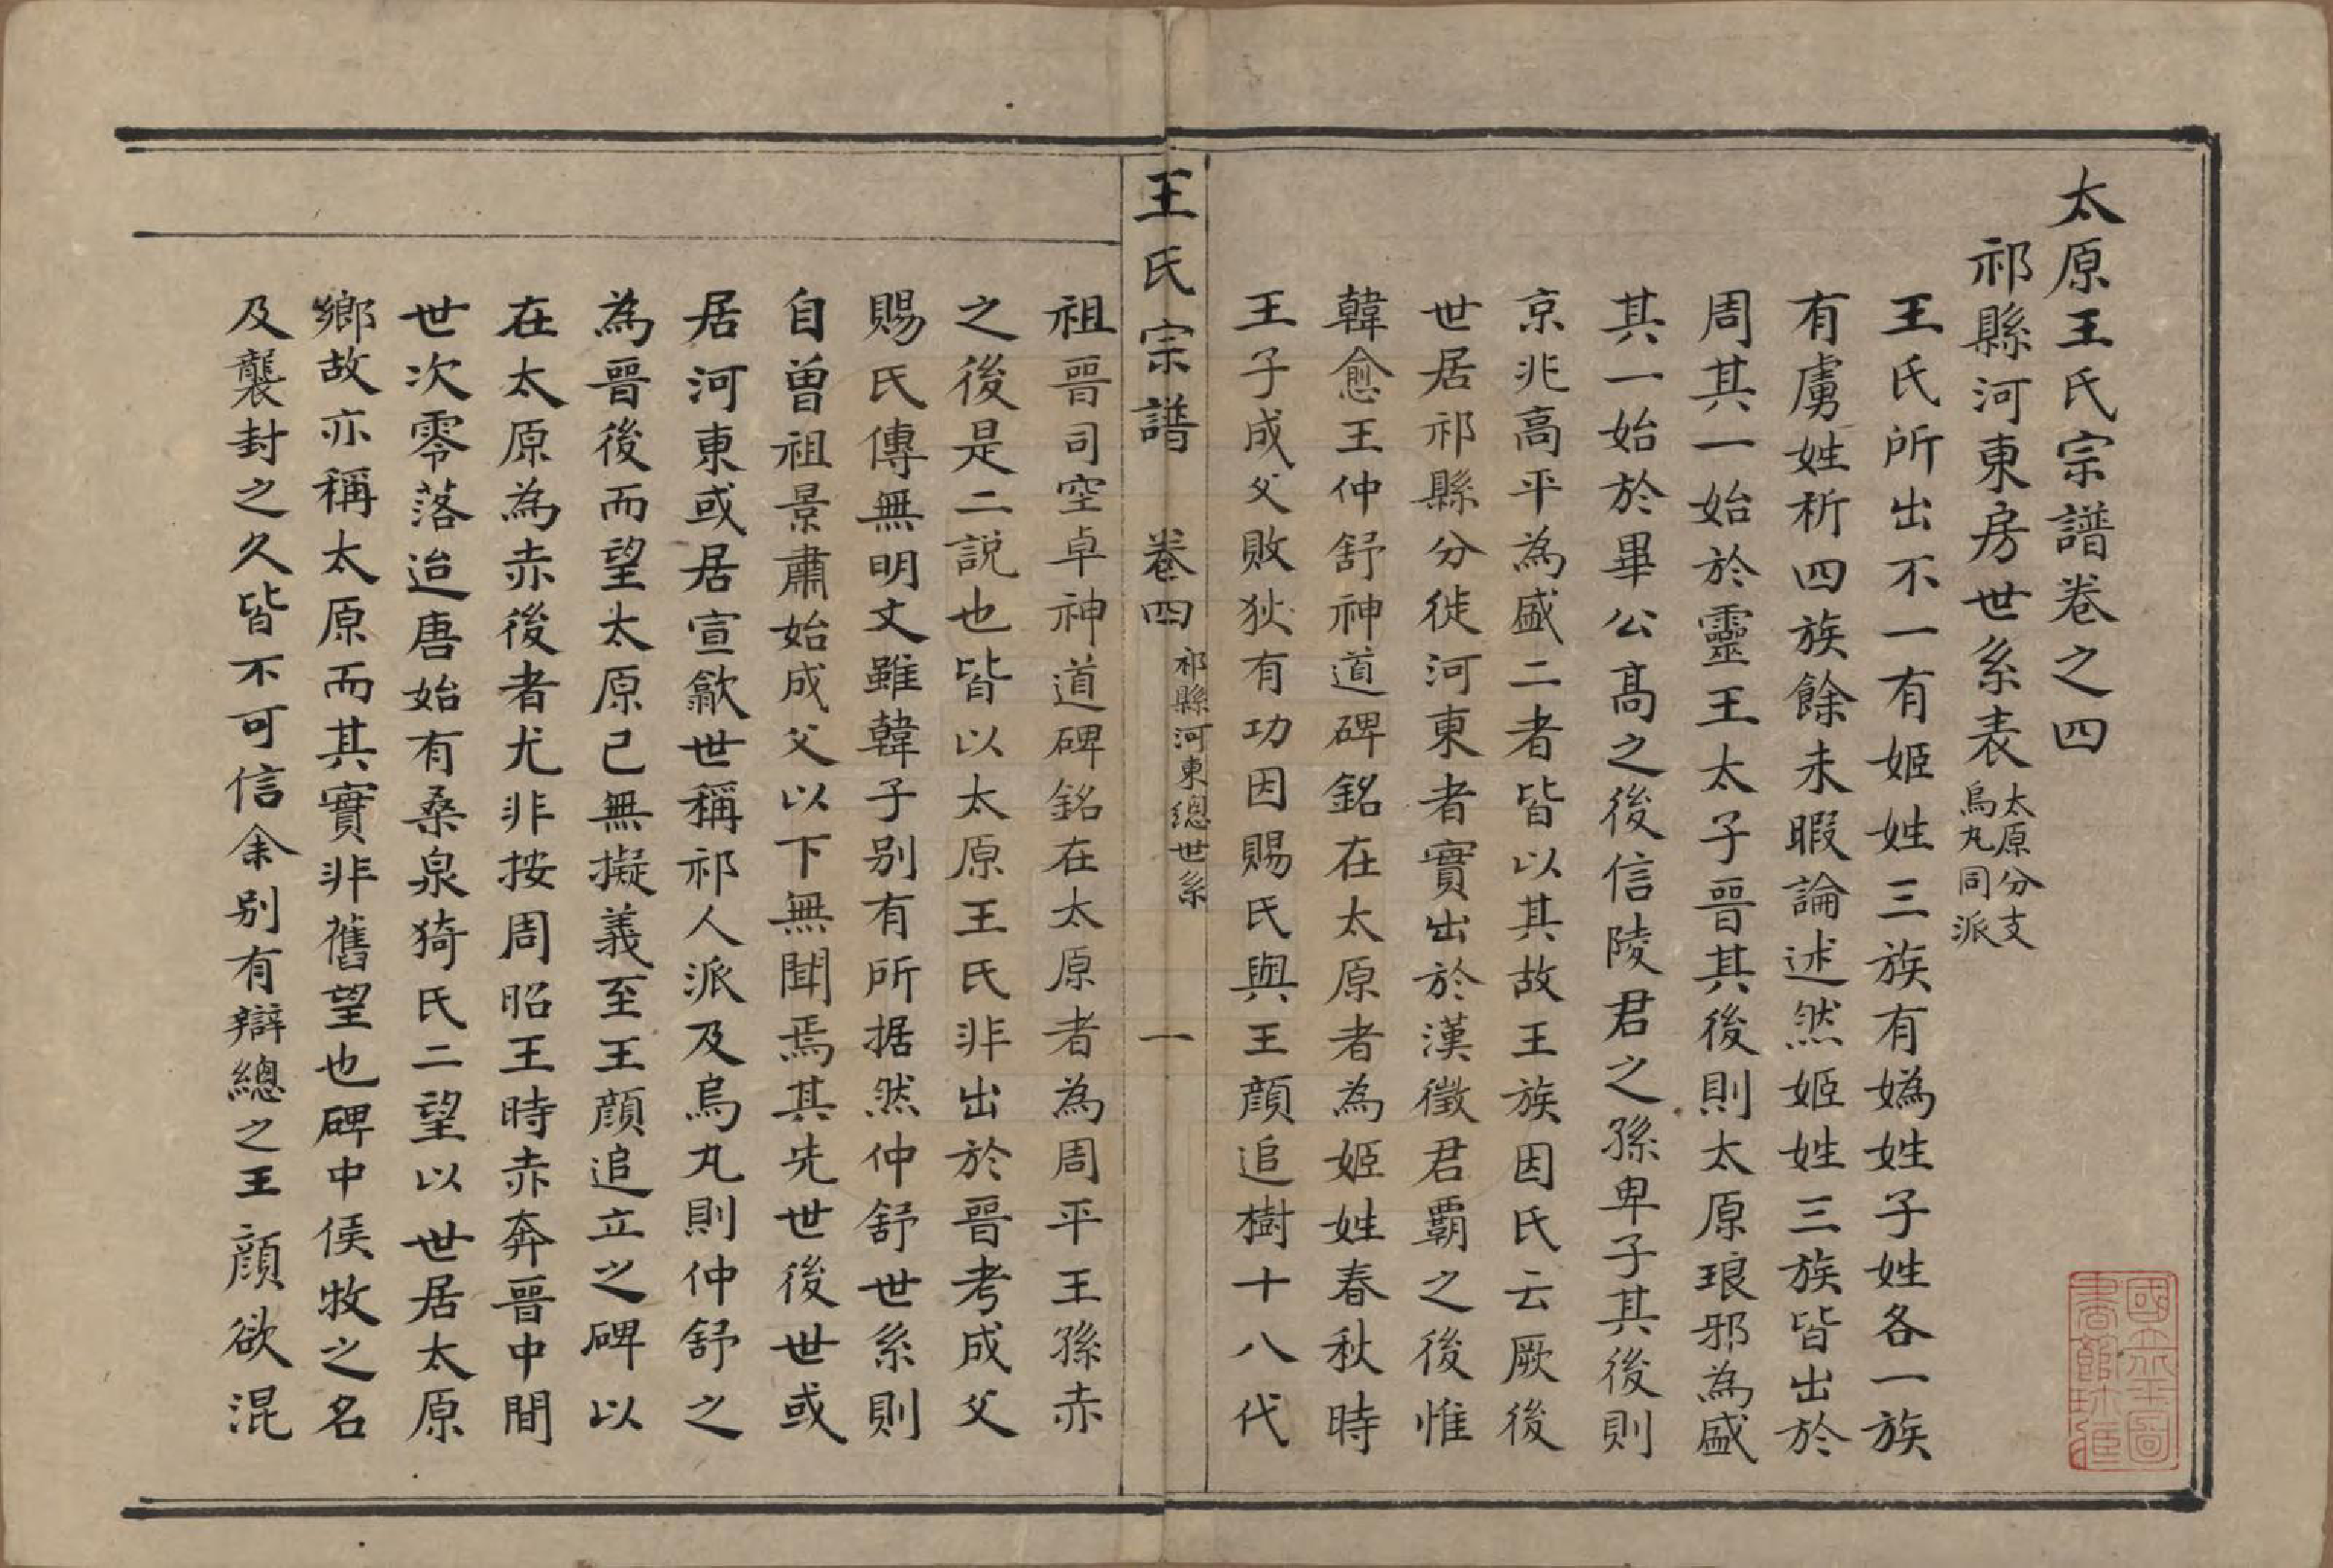 太原王氏宗譜卷之四
祁縣河東房世系表
太原分支
烏丸同派
王氏所出不一有姬姓三族有嬀姓子姓各一族
有虜姓析四族餘未暇論述然姬姓三族皆出於
周其一始於靈王太子晉其後則太原琅邪為盛
其一始於畢公高之後信陵君之孫卑子其後則
京兆高平為盛二者皆以其故王族因氏云厥後
世居祁縣分徙河東者實出於漢徵君霸之後惟
韓愈王仲舒神道碑銘在太原者為姬姓春秋時
王子成父敗狄有功因賜氏與王顔追樹十八代
王氏宗譜 卷四 祁縣河東總世系 一
祖晉司空卓神道碑銘在太原者為周平王孫赤
之後是二説也皆以太原王氏非出於晉考成父
賜氏傳無明文雖韓子别有所据然仲舒世系則
自曾祖景肅始成父以下無聞焉其先世後世或
居河東或居宣歙世稱祁人派及烏丸則仲舒之
為晉後而望太原已無擬義至王顔追立之碑以
在太原為赤後者尤非按周昭王時赤奔晉中間
世次零落迨唐始有桑泉猗氏二望以世居太原
鄉故亦稱太原而其實非舊望也碑中侯牧之名
及襲封之久皆不可信余别有辯總之王顔欲混
國立北平圖
書館珍藏